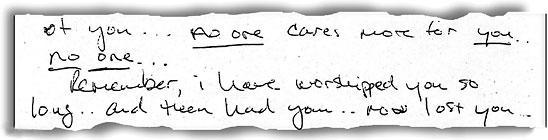 of you... no one cares more for you..
no one...
Remember, i have worshipped you so
long.. and then had you.. now lost you..